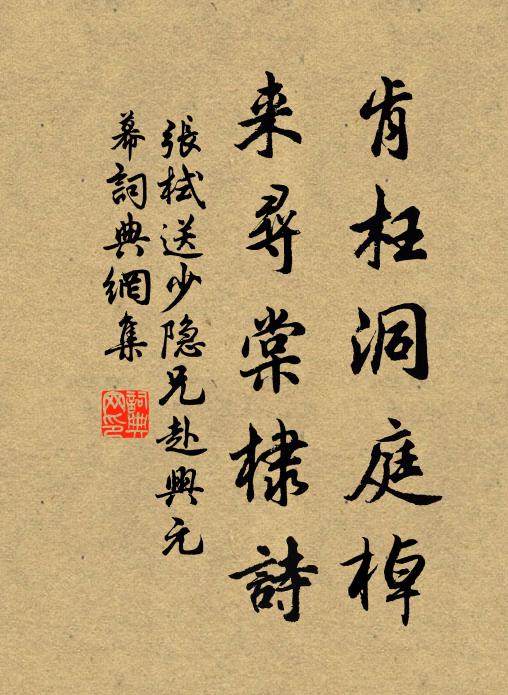 肯枉洞庭棹
来尋棠棣詩
張栻送少隐兄赴興元
幕詞典網集
詞典
网印